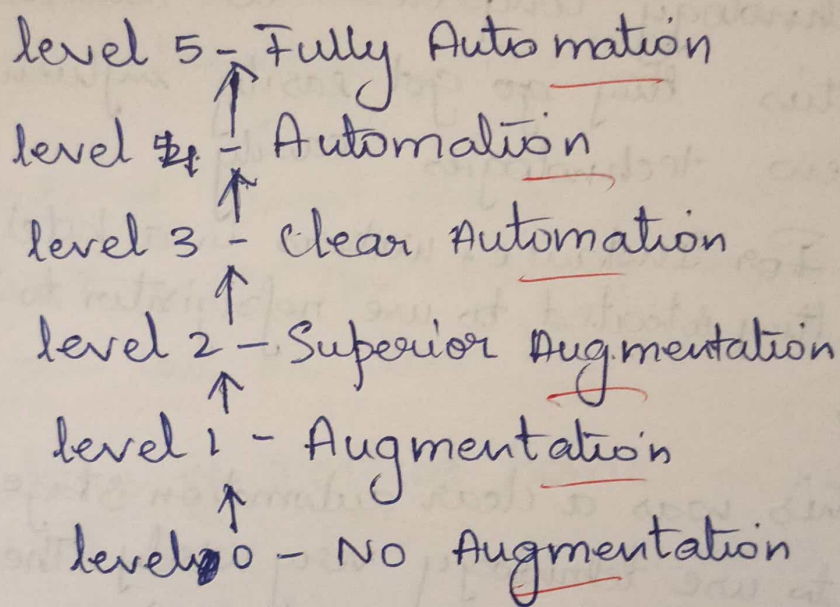 level 5 - Fully Automation
level 4 - Automation
level 3 - Clear Automation
level 2 - Superior Augmentation
level 1 - Augmentation
level 0 - NO Augmentation